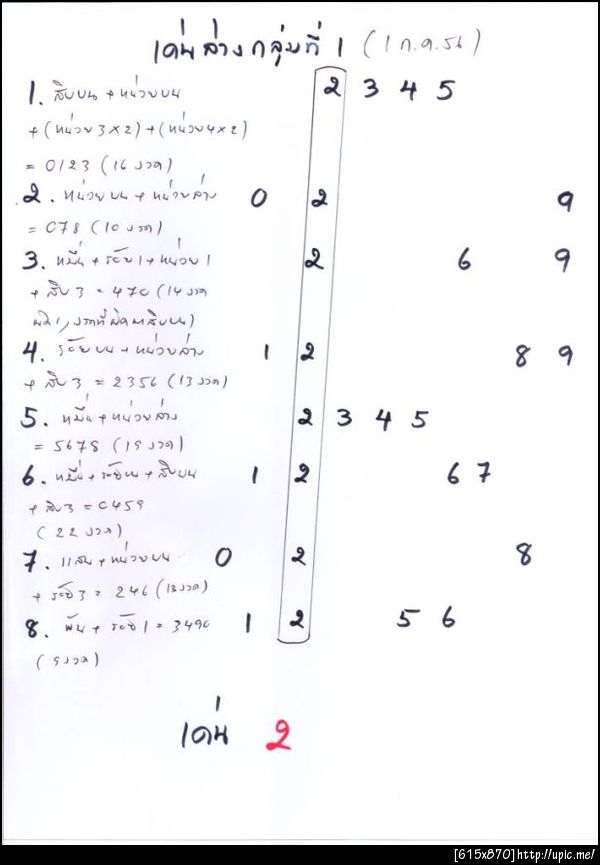 เด่นล่างกลุ่มที่ 1 (1 ก.ค.56)
1. สิบบน + หน่วยบน 2 3 4 5
+ (หน่วย3x2) + (หน่วย4x2)
= 0123 (16 งวด)
2. หน่วยบน + หน่วยล่าง 0 2 9
= 078 (10 งวด)
3. หมื่น + ร้อย1 + หน่วย1 2 6 9
+ สิบ3 = 470 (14 งวด
ผิด1, งวดที่ผิดมาสิบบน)
4. ร้อยบน + หน่วยล่าง 1 2 8 9
+ สิบ3 = 2356 (13 งวด)
5. หมื่น + หน่วยล่าง 2 3 4 5
= 5678 (19 งวด)
6. หมื่น + ร้อยบน + สิบบน 1 2 6 7
+ สิบ3 = 0459
(22 งวด)
7. แสน + หน่วยบน 0 2 8
+ ร้อย3 = 246 (13งวด)
8. พัน + ร้อย1 = 3490 1 2 5 6
(9งวด)
เด่น 2
[615x870]http://upic.me/